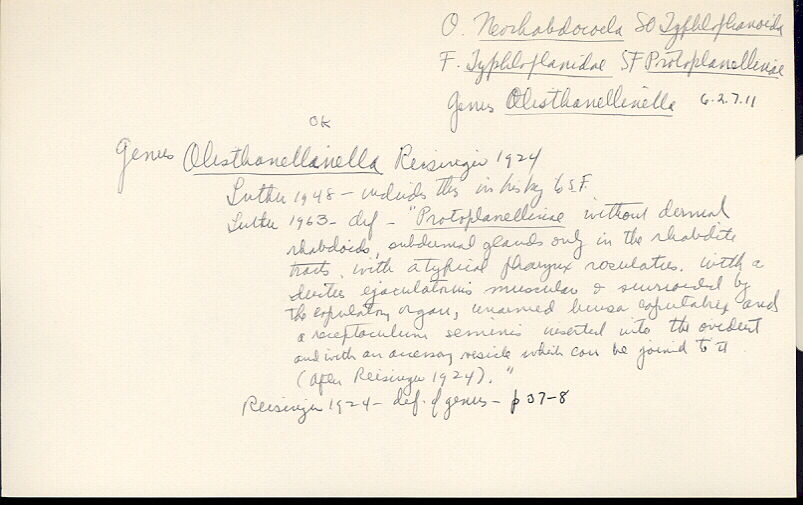 O. Neorhabdocoela SO Typhloplanoida
F. Typhloplanidae SF Protoplanellinae
Genus Olisthanellinella 6.2.7.11
OK
Genus Olisthanellinella Reisinger 1924
Luther 1948 - includes this in his key to S.F.
Luther 1963 - def - "Protoplanellinae without dermal
rhabdoids, subdermal glands only in the rhabdite
tracts, with a typical pharynx rosulatus. With a
ductus ejaculatorius muscular & surrounded by
the copulatory organ, unarmed bursa copulatrix and
a receptaculum seminis inserted into the oviduct
and with an accessory vesicle which can be joined to it
(after Reisinger 1924)."
Reisinger 1924 - def. of genus - p 37-8